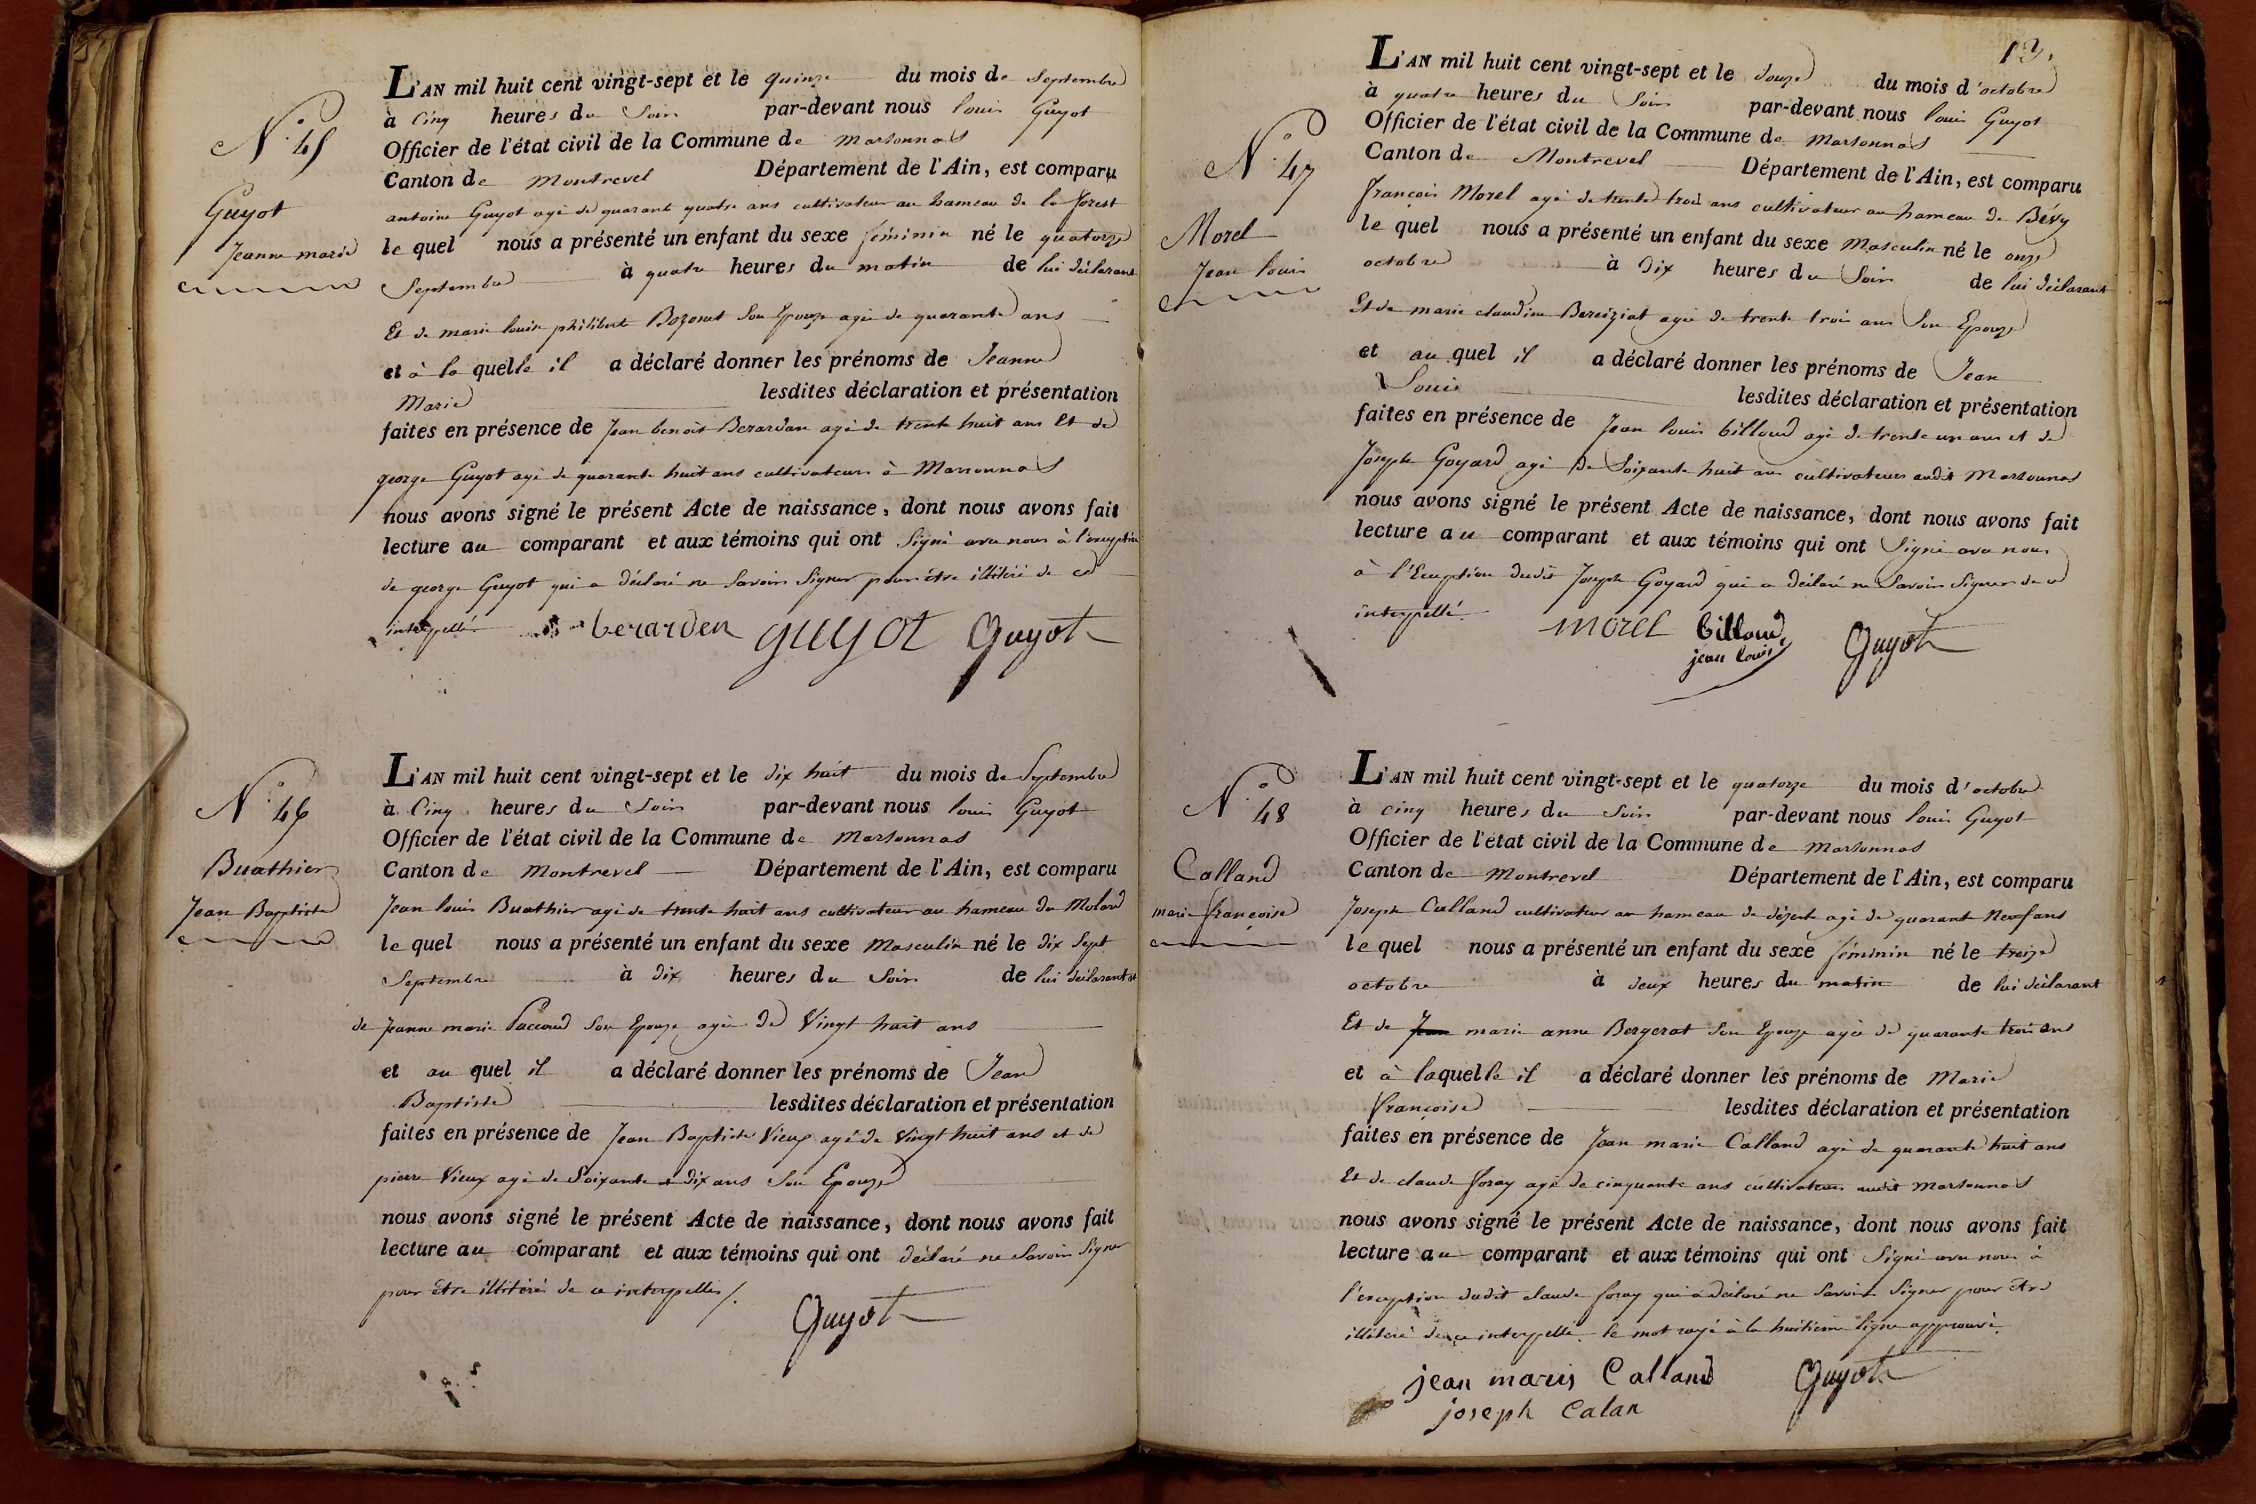 N.° 45
Guyot
Jeanne marie
L'AN mil huit cent vingt-sept et le quinze du mois de Septembre
à Cinq heures du Soir par-devant nous louis Guyot
Officier de l'état civil de la Commune de Marsonnas
Canton de Montrevel Département de l'Ain, est comparu
antoine Guyot agé de quarant quatre ans cultivateur au hameau de la forest
le quel nous a présenté un enfant du sexe féminin né le quatorze
Septembre à quatre heures du matin de lui déclarant
Et de marie louise philibert Bozonet Son Epouze agée de quarante ans
et à la quelle il a déclaré donner les prénoms de Jeanne
Marie lesdites déclaration et présentation
faites en présence de Jean benoit Berardan agé de trente huit ans Et de
george Guyot agé de quarante huit ans cultivateurs à Marsonnas
nous avons signé le présent Acte de naissance, dont nous avons fait
lecture au comparant et aux témoins qui ont Signé avec nous à l'exception
de george Guyot qui a déclaré ne Savoir Signer pour être illitéré de ce
interpellé
berarden GUYOT Guyot
N.° 46
Buathier
Jean Baptiste
L'AN mil huit cent vingt-sept et le dix huit du mois de Septembre
à Cinq heures du Soir par-devant nous louis Guyot
Officier de l'état civil de la Commune de Marsonnas
Canton de Montrevel Département de l'Ain, est comparu
Jean louis Buathier agé de trente huit ans cultivateur au hameau du Molard
le quel nous a présenté un enfant du sexe Masculin né le dix Sept
Septembre à dix heures du Soir de lui déclarant et
de Jeanne marie Paccoud Son Epouze agée de Vingt huit ans
et au quel il a déclaré donner les prénoms de Jean
Baptiste lesdites déclaration et présentation
faites en présence de Jean Baptiste Vieux agé de Vingt huit ans et de
pierre Vieux agé de Soixante dix ans Son Epouze
nous avons signé le présent Acte de naissance, dont nous avons fait
lecture au comparant et aux témoins qui ont déclaré ne Savoir Signer
pour être illitérés de ce interpellés /.
Guyot
13.
N.° 47
Morel
Jean louis
L'AN mil huit cent vingt-sept et le douze du mois d'octobre
à quatre heures du Soir par-devant nous louis Guyot
Officier de l'état civil de la Commune de Marsonnas
Canton de Montrevel Département de l'Ain, est comparu
françois Morel agé de trente trois ans cultivateur au hameau de Bévy
le quel nous a présenté un enfant du sexe Masculin né le onze
octobre à dix heures du Soir de lui déclarant
Et de marie claudine Bereiziat agée de trente trois ans Son Epouze
et au quel il a déclaré donner les prénoms de Jean
Louis lesdites déclaration et présentation
faites en présence de Jean louis billoud agé de trente un ans et de
Joseph Goyard agé de Soixante huit ans cultivateurs audit Marsonnas
nous avons signé le présent Acte de naissance, dont nous avons fait
lecture au comparant et aux témoins qui ont Signé avec nous
à l'Exception dudit Joseph Goyard qui a déclaré ne Savoir Signer de ce
interpellé.
morel billoud Guyot
jean louis
N.° 48
Calland
marie françoise
L'AN mil huit cent vingt-sept et le quatorze du mois d'octobre
à cinq heures du Soir par-devant nous louis Guyot
Officier de l'état civil de la Commune de Marsonnas
Canton de Montrevel Département de l'Ain, est comparu
Joseph Calland cultivateur au hameau de agé de quarant Neuf ans
le quel nous a présenté un enfant du sexe féminin né le treize
octobre à deux heures du matin de lui déclarant
Et de Jean marie anne Bergerat Son Epouze agée de quarante trois ans
et à laquelle il a déclaré donner les prénoms de Marie
françoise lesdites déclaration et présentation
faites en présence de Jean marie Calland agé de quarante huit ans
Et de claude foray agé de cinquante ans cultivateurs audit Marsonnas
nous avons signé le présent Acte de naissance, dont nous avons fait
lecture au comparant et aux témoins qui ont Signé avec nous à
l'exception dudit claude foray qui a déclaré ne Savoir Signer pour être
illitéré de ce interpellé. le mot rayé à la huitieme ligne approuvé.
jean marie Calland Guyot
joseph Calan